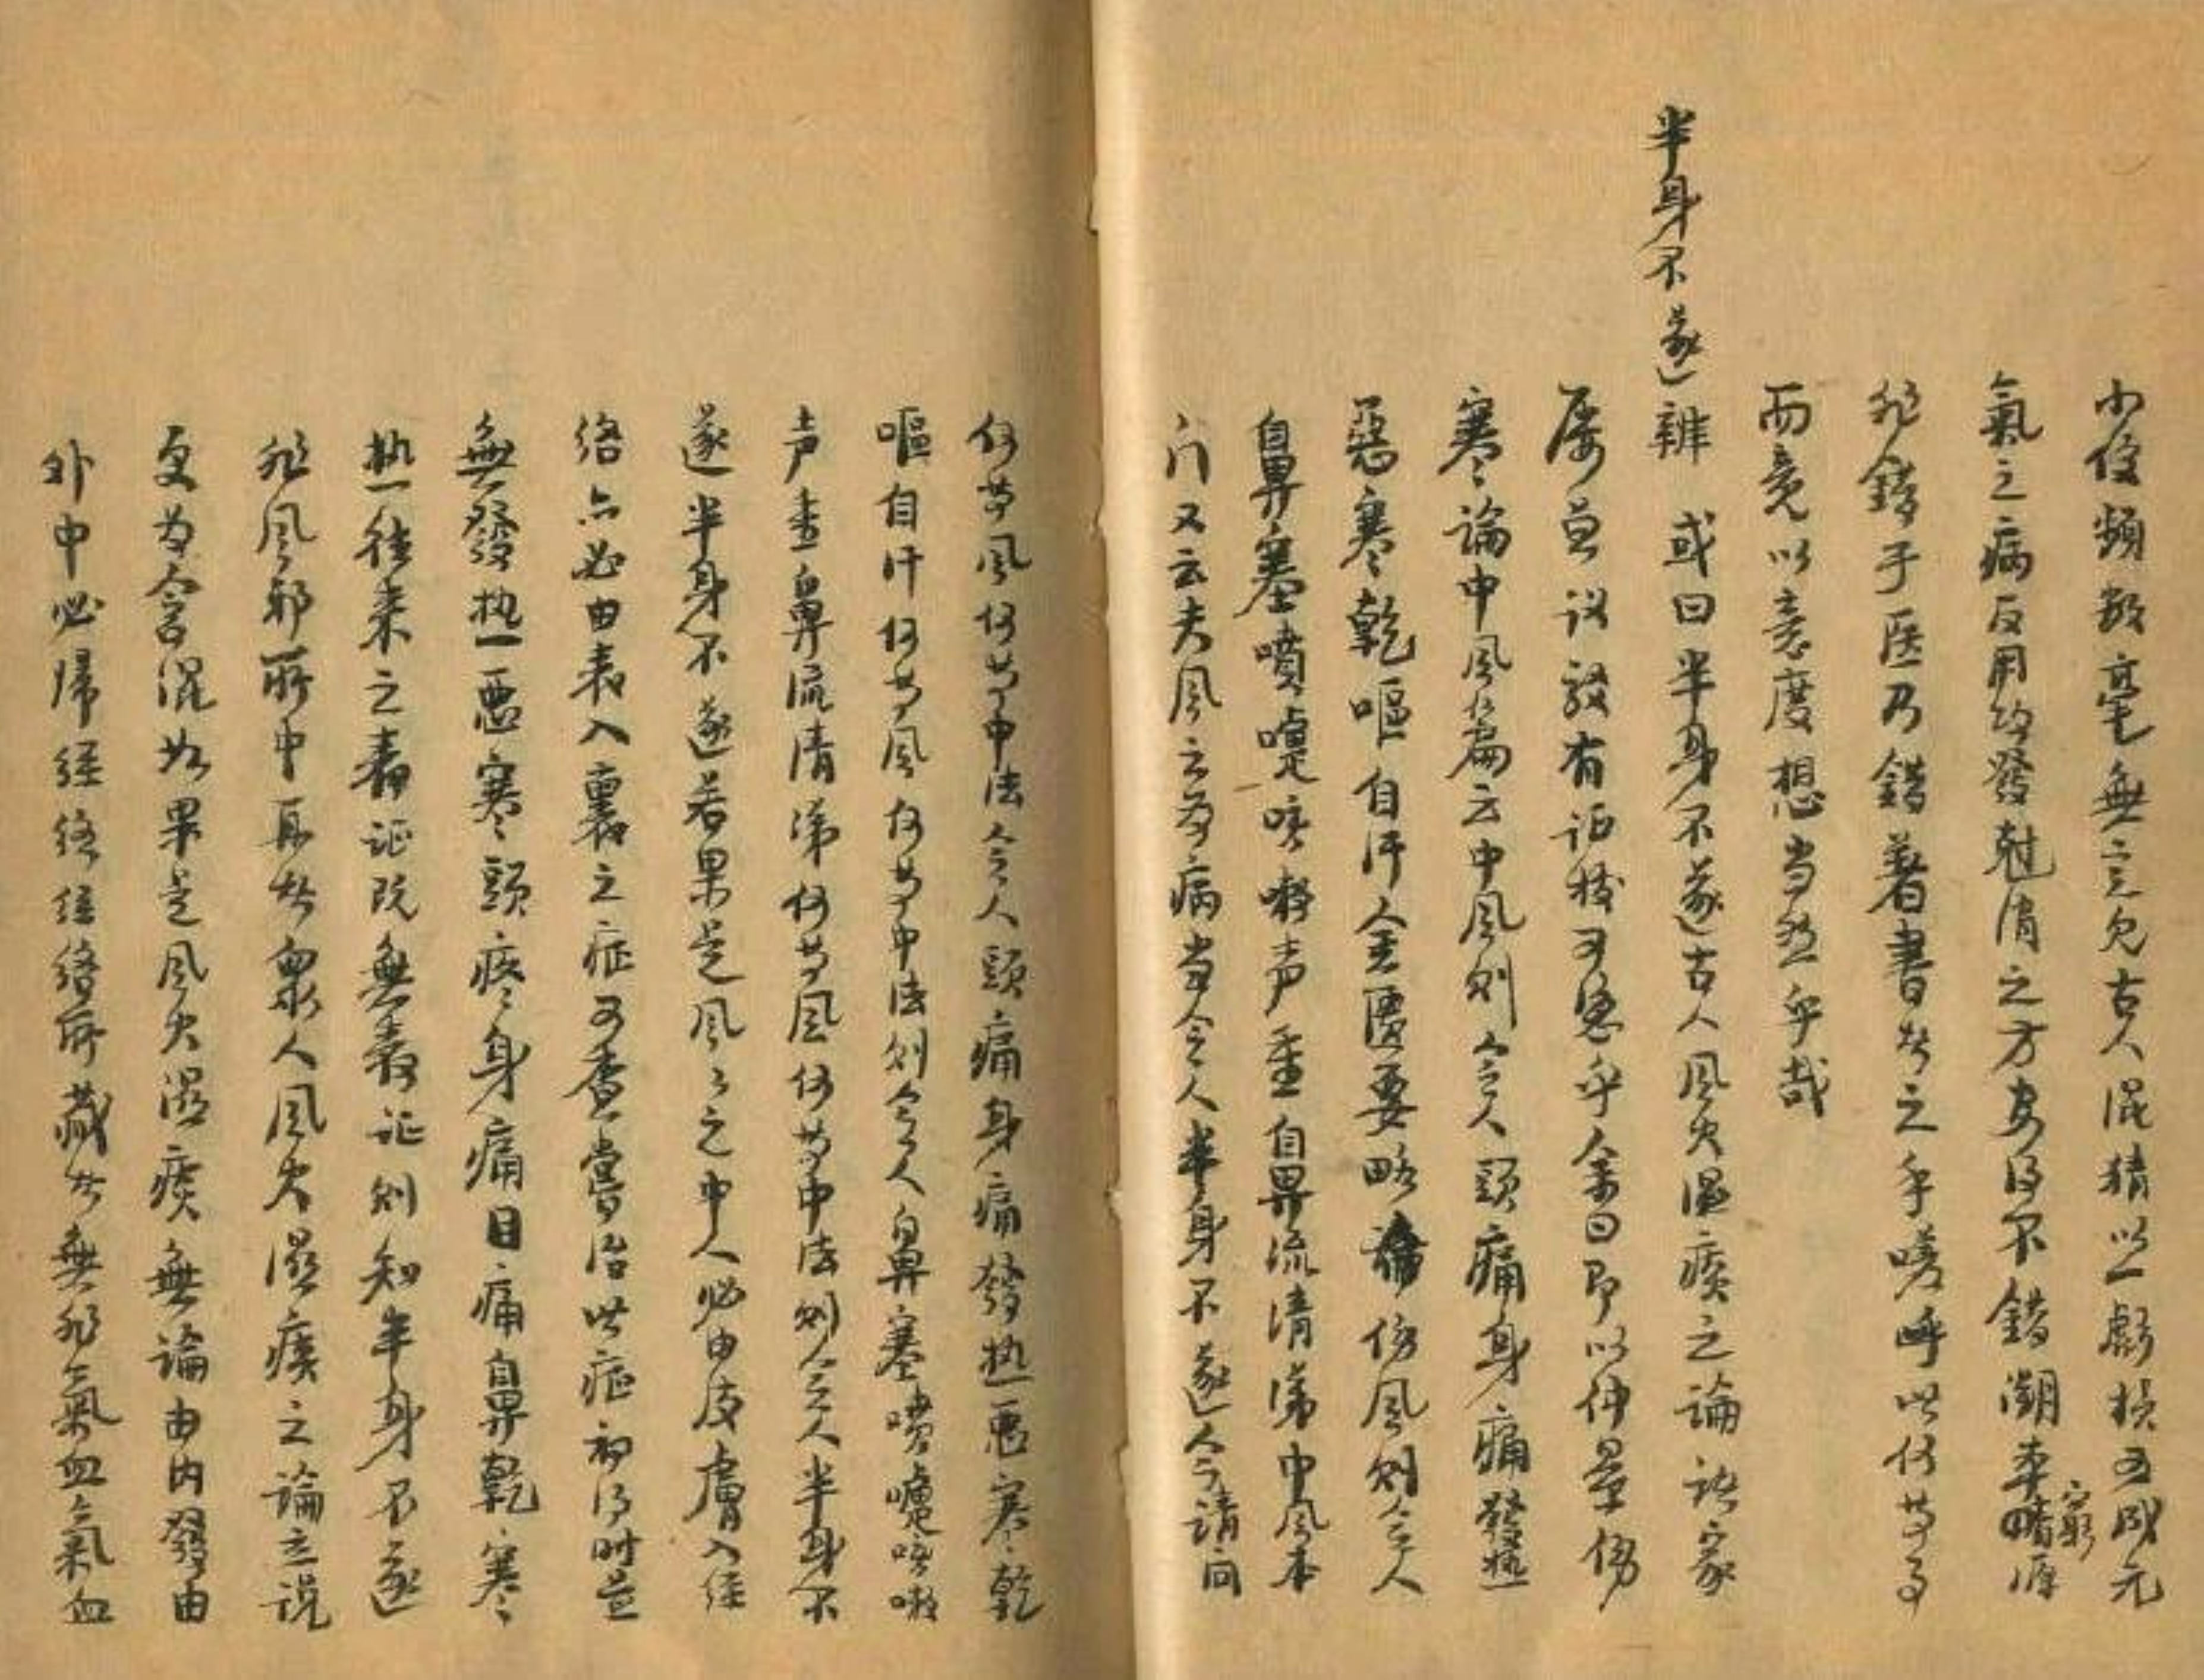 小便頻數毫無定見古人混猜以一虧損五成元
氣之病反用攻發尅消之方安得不錯溯本窮源
非錯于医乃錯著書者之手嗟呼此何等事
而竟以意度想当然乎哉
半身不遂辨 或曰半身不遂古人風火湿痰之論諸家
屡立议駁有证據可憑乎余曰即以仲景傷
寒論中風篇云中風則令人頭痛身痛發热
惡寒乾嘔自汗金匱要略傷風則令人
鼻塞噴嚏咳嗽声重鼻流清涕中風本
门又云夫風之为病当令人半身不遂今請问
何等風何等中法令人頭痛身痛發热悪寒乾
嘔自汗何等風何等中法則令人鼻塞噴嚏咳嗽
声重鼻流清涕何等風何等中法則令人半身不
遂半身不遂若果是風々之中人必由皮膚入经
络亦必由表入裏之症可查嘗治此症初得时並
無發热悪寒頭疼身痛目痛鼻乾寒
热往来之表证既無表证則知半身不遂
非風邪所中再者衆人風火湿痰之論立说
更为含混如果是風火湿痰無論由内發由
外中必歸经络经络所藏者無非氣血氣血